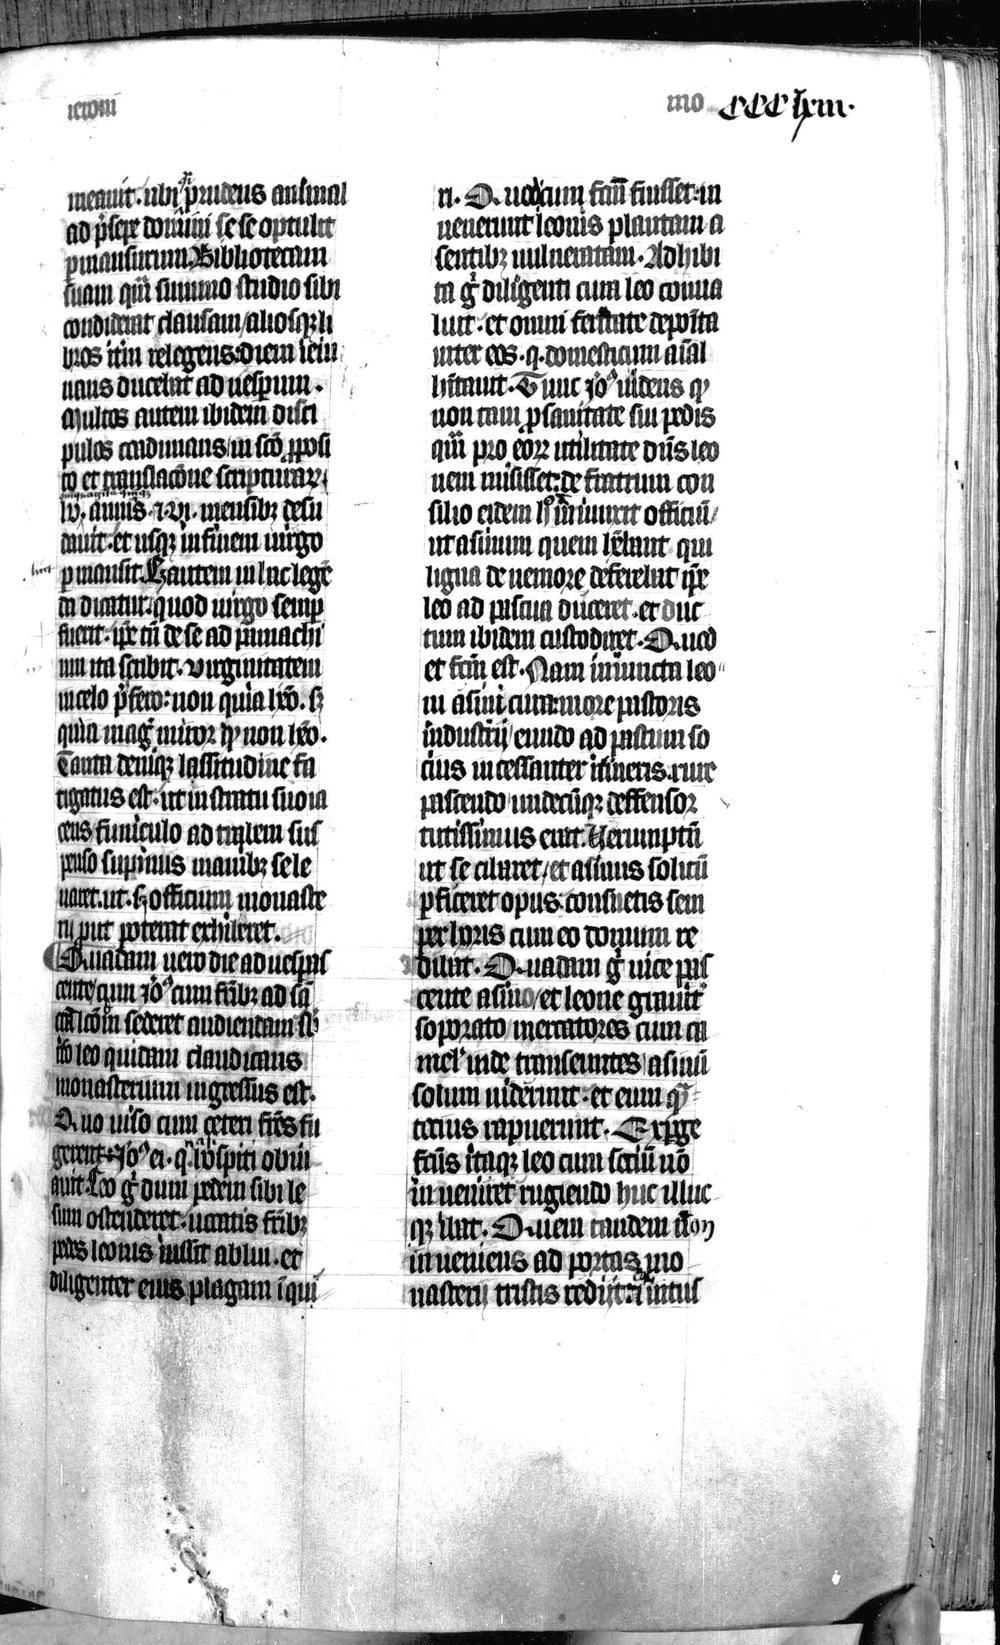 ieroni
mo CCClxiii.
meauit. ubi qͥ prudens animal
ad p̃sepe domini se se optulit
ꝑmansurum. Bibliotecam
suam quã summo studio sibi
condiderat clausam / aliosqꝫ li
bros itm̃ relegens. diem ieiu
nans ducebat ad uesperum.
Multos autem ibidem disci
pulos coadunans / in scõ ꝓposi
to et translacõne scripturaꝝ /
lv. annis. ⁊ vi. mensibꝫ desu
dauit. et usqꝫ in finem uirgo
ꝑmansit. Hꝫ autem in hac legẽ
da dicatur. quod uirgo semꝑ
fuerit. ip̃e tñ de se ad pamachi
um ita scribit. Virginitatem
in celo p̃fero: non quia hẽo. sꝫ
quia mag̃ miror qꝫ non hẽo.
Tanta deniqꝫ lassitudine fa
tigatus est. ut in stratu suo ia
cens funiculo ad trabem sus
penso supinus manibꝫ se le
uaret. ut. sꝫ officium monaste
rij put poterat exhiberet.
Quadam uero die aduespas
cente / cum Jeõ⁹ cum fr̃ibꝫ ad sa
crã lcõm sederet audiendam sb̃
ito leo quidam claudicans
monasterium ingressus est.
Quo uiso cum ceteri fr̃es fu
gerent. Jeõ⁹ ei. qͣsi hospiti obui
auit. Leo g̃ dum pedem sibi le
sum ostenderet. uocatis fr̃ibꝫ
pedes leonis iussit ablui. et
diligenter eius plagam ĩqui
ri. Quod cum fcm̃ fuisset. in
uenerunt leonis plantam a
sentibꝫ uulneratam. Adhibi
ta g̃ diligenti cura leo conua
luit. et omni feritate deposita
inter eos. q. domesticum aĩal
hĩtauit. Tunc Jeõ⁹ uidens qꝫ
non tam ꝓ sanitate sui pedis
quã pro eoꝝ utilitate dñs leo
nem misisset: de fratrum con
silio eidem h⁹ iniunxit officiũ /
ut asinum quem hẽbant qui
ligna de nemore deferebat ip̃e
leo ad pascua duceret. et duc
tum ibidem custodiret. Quod
et fcm̃ est. Nam iniuncta leo
ni asini cura: more pastoris
industrij eundo ad pastum so
cius incessanter itineris. rure
pascendo undecũqꝫ deffensor
tutissimus erat. Verumptñ
ut se cibaret / et asinus solitũ
ꝑficeret opus: consuetis sem
per horis cum eo domum re
dibat. Quadam g̃ uice pas
cente asino / et leone grauit᷑
soporato mercatores cum ca
mel᷑ inde transeuntes / asinũ
solum uiderunt. et eum qͣ
tocius rapuerunt. Experge
fcũs itaqꝫ leo cum sociũ nõ
inueniret rugiendo huc illuc
qꝫ ibat. Quem tandem non
inueniens ad portas mo
nasterij tristis redijt. ⁊ intus